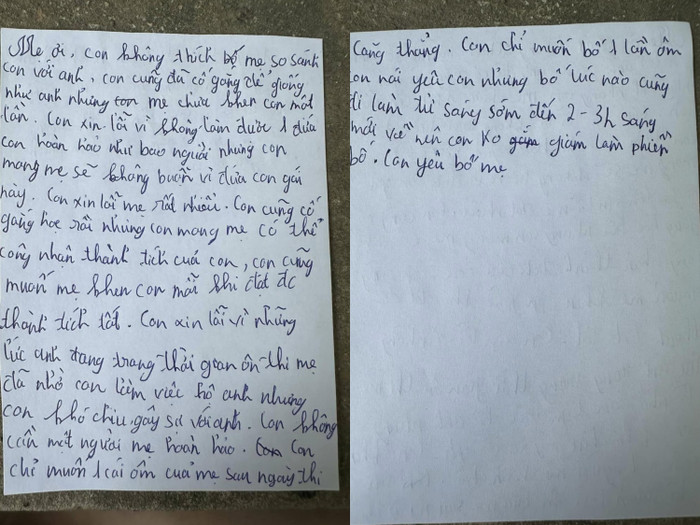 Mẹ ơi, con không thích bố mẹ so sánh
con với anh, con cũng đã cố gắng để giống
như anh nhưng con mẹ chưa khen con một
lần. Con xin lỗi vì không làm được 1 đứa
con hoàn hảo như bao người nhưng con
mong mẹ sẽ không buồn vì đứa con gái
này. Con xin lỗi mẹ rất nhiều. Con cũng cố
gắng học rồi nhưng con mong mẹ có thể
công nhận thành tích của con, con cũng
muốn mẹ khen con mỗi khi đạt đc
thành tích tốt. Con xin lỗi vì những
lúc anh đang trong thời gian ôn thi mẹ
đã nhờ con làm việc hộ anh nhưng
con khó chịu, gây sự với anh. Con không
cần một người mẹ hoàn hảo. Con
chỉ muốn 1 cái ôm của mẹ sau ngày thi
căng thẳng. Con chỉ muốn bố 1 lần ôm
con nói yêu con nhưng bố lúc nào cũng
đi làm từ sáng sớm đến 2-3h sáng
mới về nên con ko giám làm phiền
bố. Con yêu bố mẹ